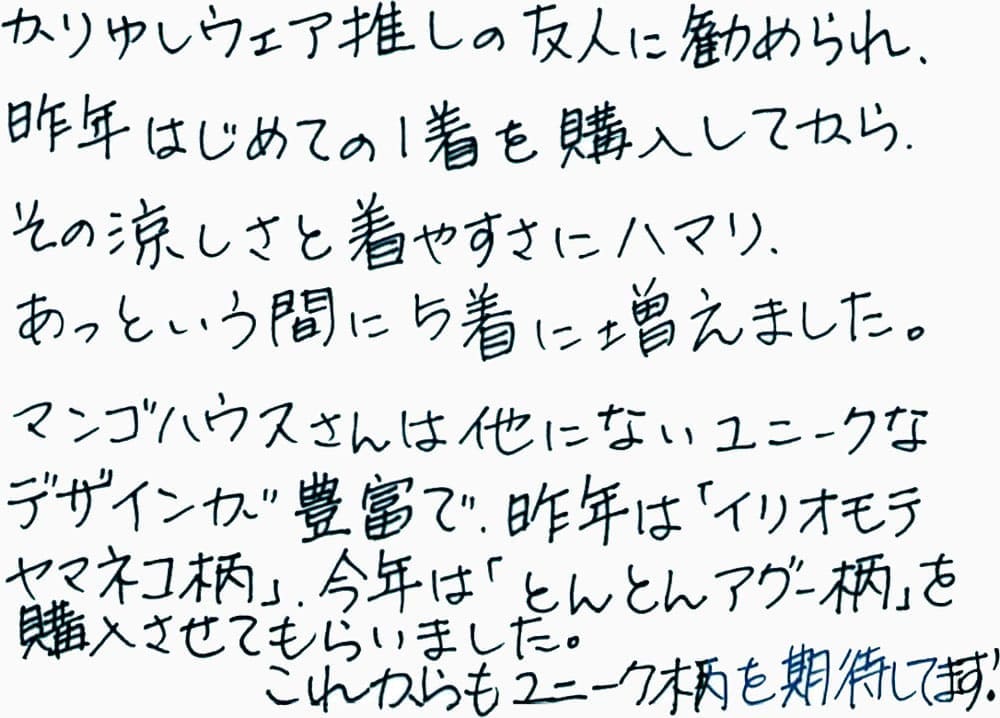 かりゆしウェア推しの友人に勧められ、
昨年はじめての1着を購入してから、
その涼しさと着やすさにハマり、
あっという間に5着に増えました。
マンゴハウスさんは他にないユニークな
デザインが豊富で、昨年は「イリオモテ
ヤマネコ柄」、今年は「とんとんアグー柄」を
購入させてもらいました。
これからもユニーク柄を期待してます!